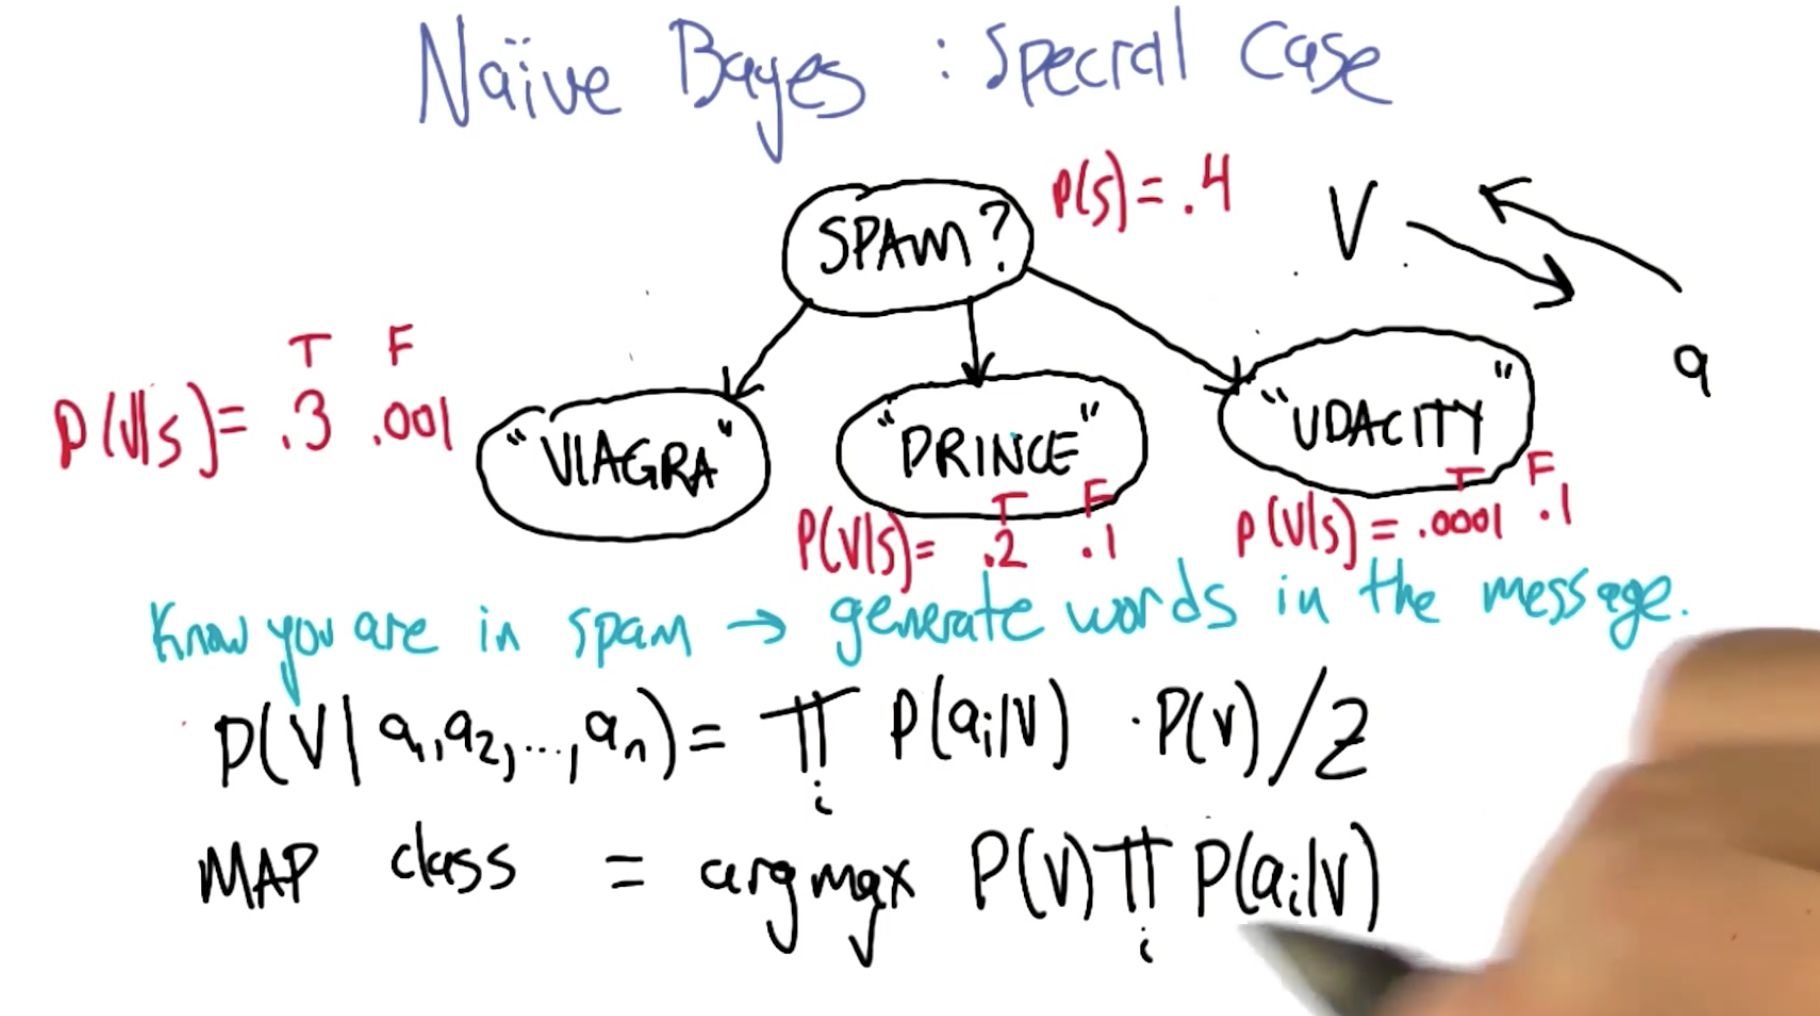 Naïve Bayes : Special Case
P(S) = .4
SPAM?
V
a
T F
P(V|S) = .3 .001
"VIAGRA"
"PRINCE"
"UDACITY"
T F
P(V|S) = .2 .1
T F
P(V|S) = .0001 .1
Know you are in spam → generate words in the message.
P(V| a₁, a₂, ..., aₙ) = ∏ᵢ P(aᵢ|V) · P(V) / Z
MAP class = argmax_V P(V) ∏ᵢ P(aᵢ|V)